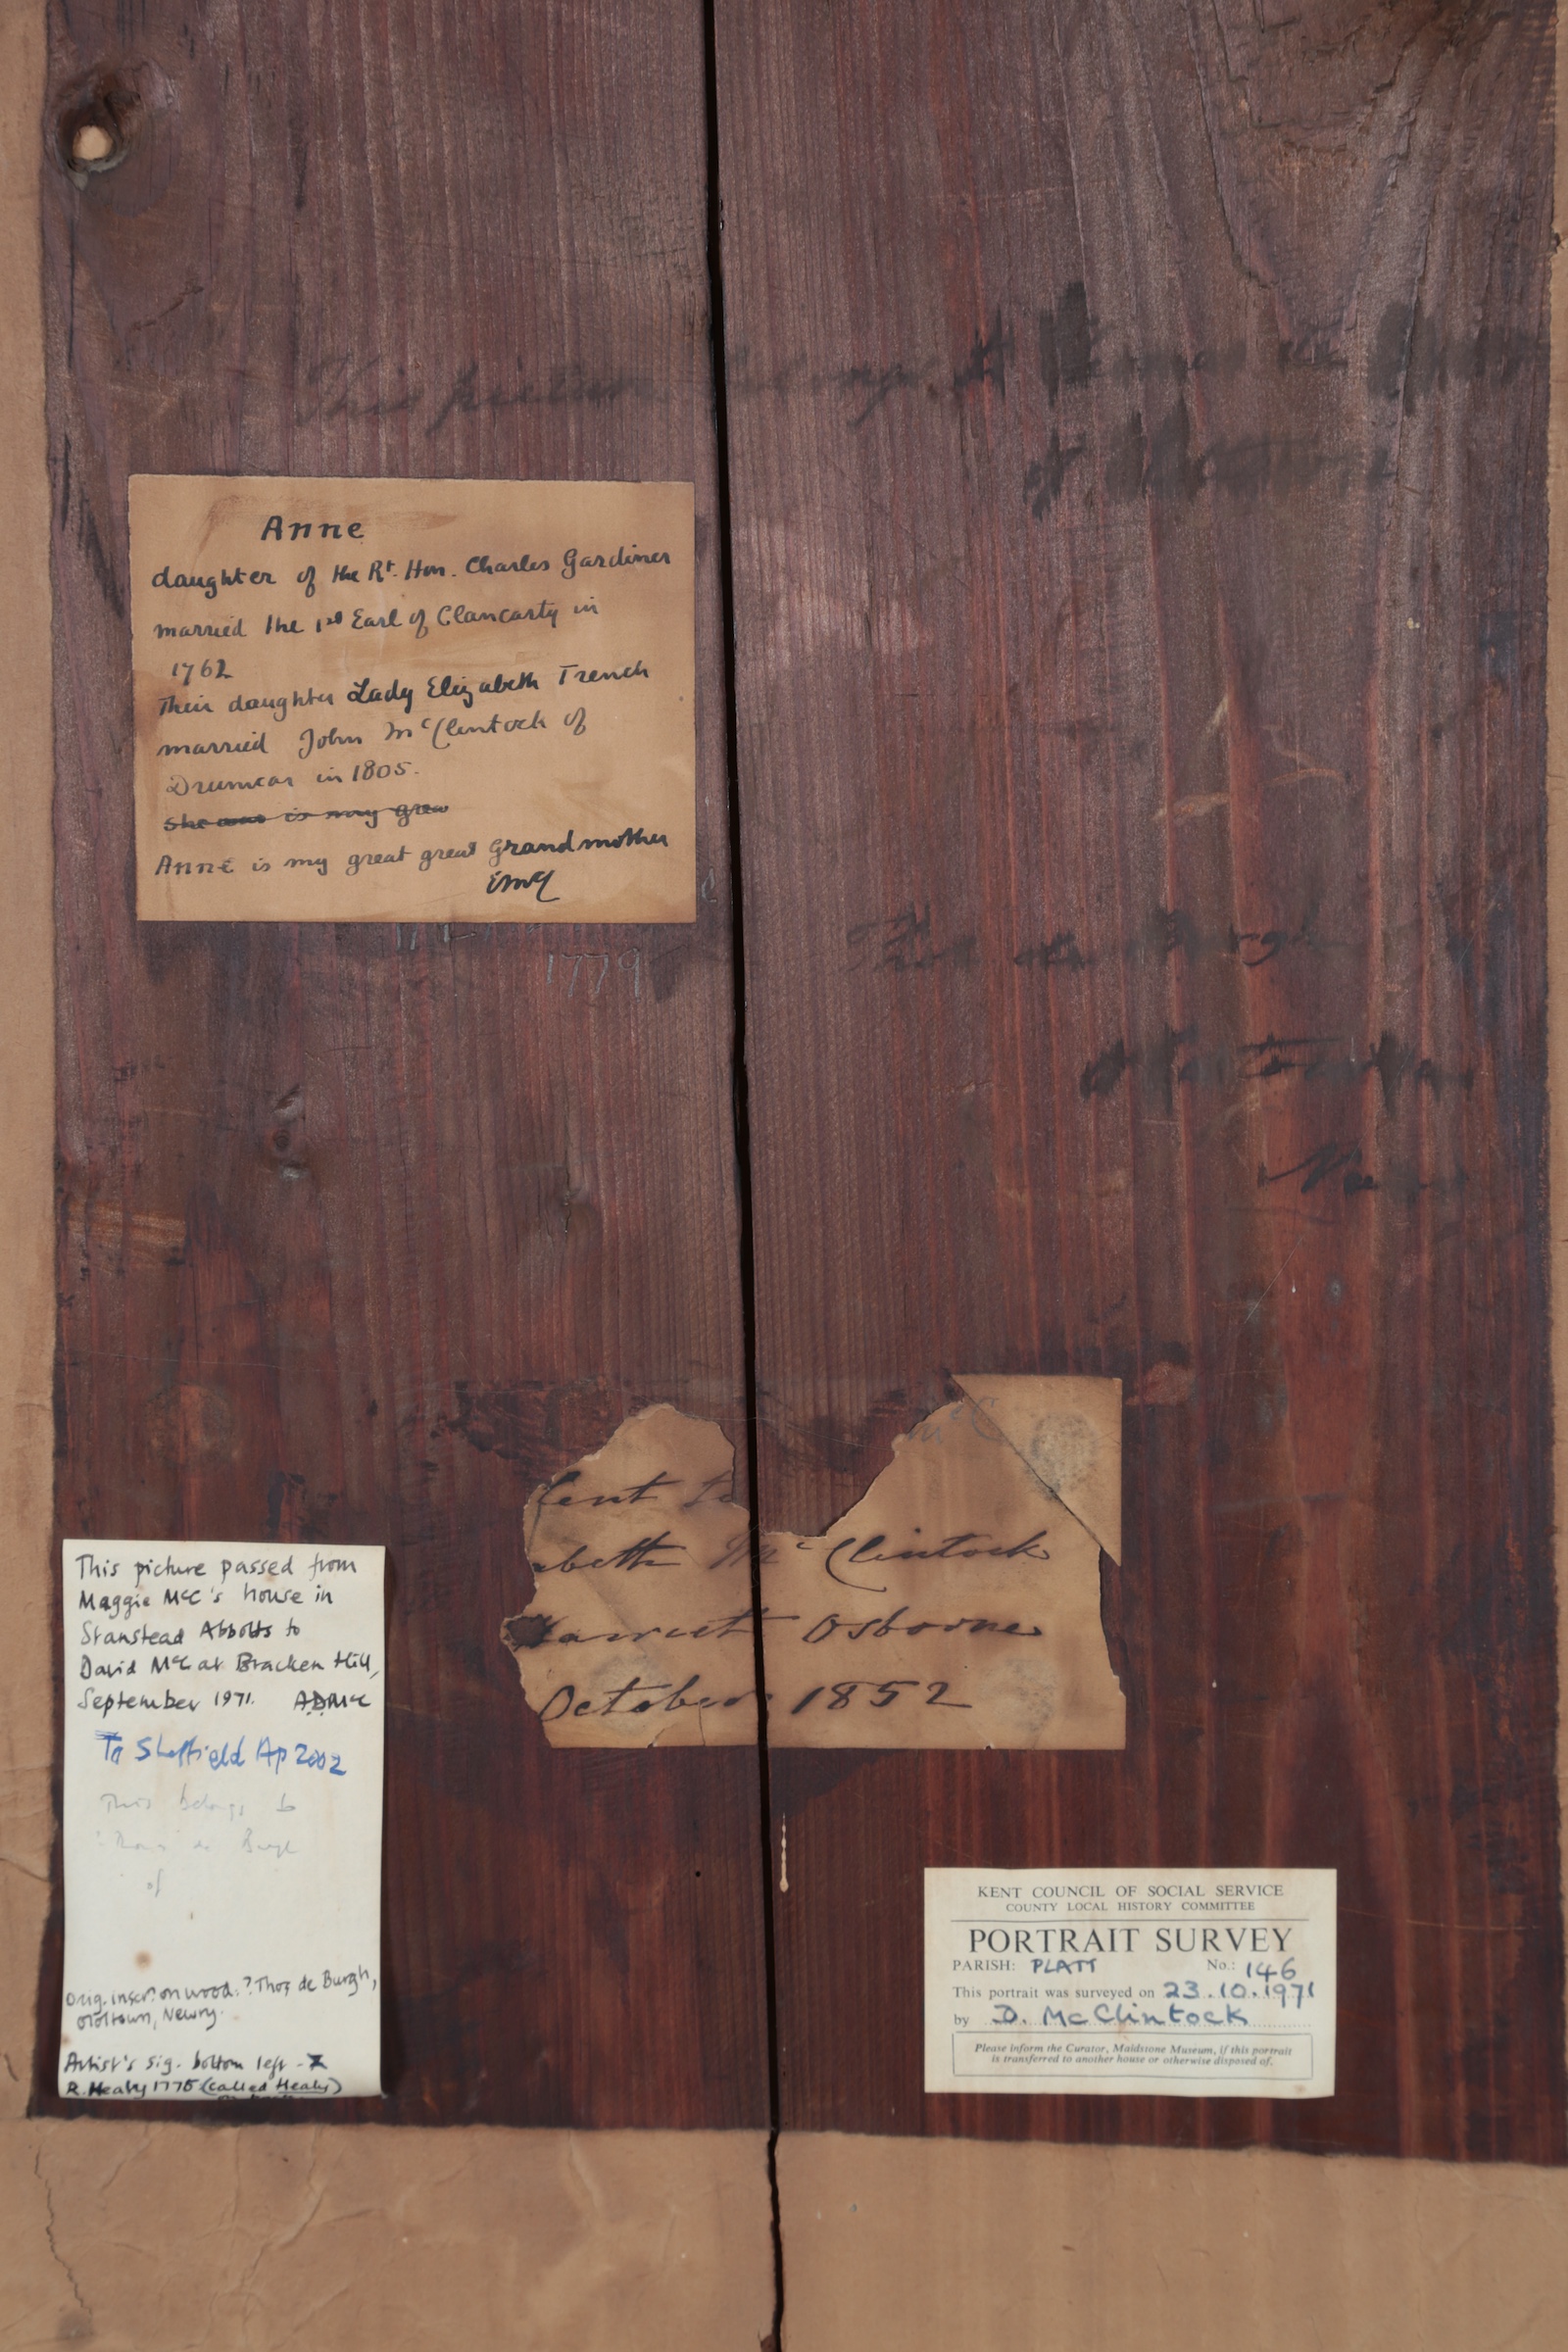 This picture
of
Anne
daughter of the Rt. Hon. Charles Gardiner
married the 1st Earl of Clancarty in
1762
Their daughter Lady Elizabeth Trench
married John McClintock of
Drumcar in 1805.
She was is my grea
Anne is my great great Grandmother
EMcC
1779
Thos de Burgh
McC
Lent to
abeth McClintock
Harriet Osborne
October 1852
This picture passed from
Maggie McC's house in
Stanstead Abbotts to
David McC at Bracken Hill,
September 1971. ADMcC
To Sheffield Ap 2002
This belongs to
Thos de Burgh
of
Orig. inscr: on wood: ? Thos de Burgh,
Oldtown, Newry.
Artist's sig. bottom left -
R. Healy 1775 (called Healy)
KENT COUNCIL OF SOCIAL SERVICE
COUNTY LOCAL HISTORY COMMITTEE
PORTRAIT SURVEY
PARISH: PLATT No.: 146
This portrait was surveyed on 23.10.1971
by D. McClintock
Please inform the Curator, Maidstone Museum, if this portrait
is transferred to another house or otherwise disposed of.